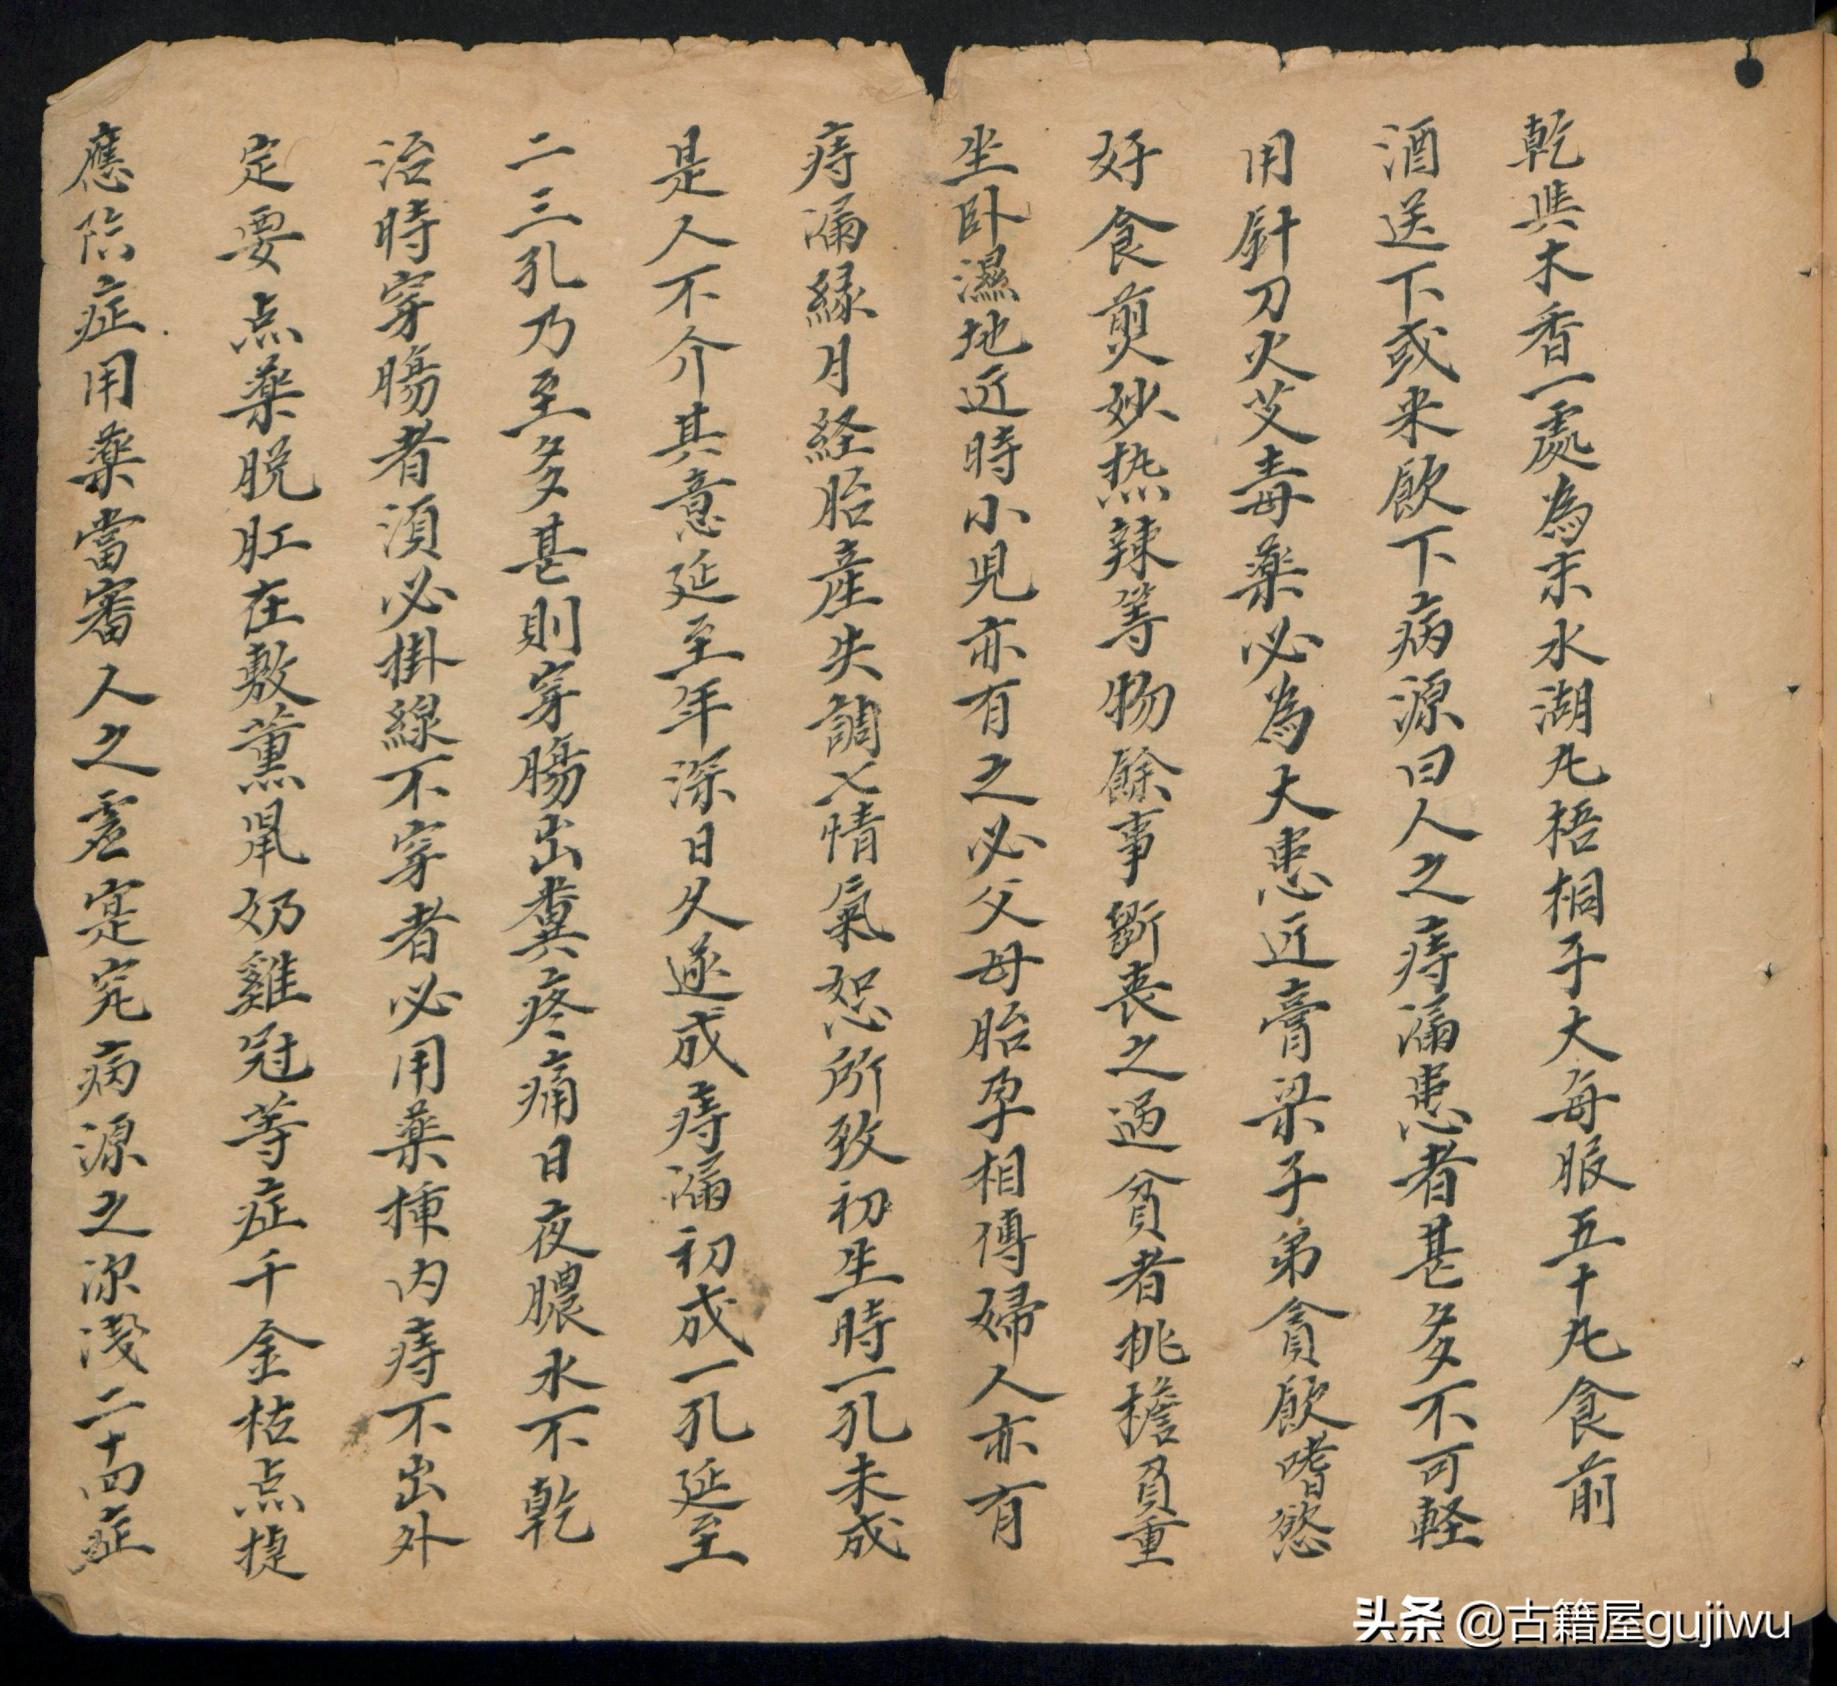 乾與木香一處為末水湖丸梧桐子大每服五十丸食前
酒送下或米飲下病源曰人之痔漏患者甚多不可軽
用針刀火艾毒藥必為大患近膏梁子弟貪飲嗜慾
好食煎炒热辣等物餘事斲丧之過貧者挑擔負重
坐卧濕地近時小兒亦有之必父母胎孕相傳婦人亦有
痔漏緣月経胎產失調七情氣怒所致初生時一孔未成
是人不介其意延至年深日久遂成痔漏初成一孔延至
二三孔乃至多甚則穿腸出糞疼痛日夜膿水不乾
治時穿腸者須必掛線不穿者必用藥捶内痔不出外
定要点藥脱肛在敷薰鼠奶雞冠等症千金枯点捷
應臨症用藥當審人之虚寔究病源之深淺二十四症
头条 @古籍屋gujiwu